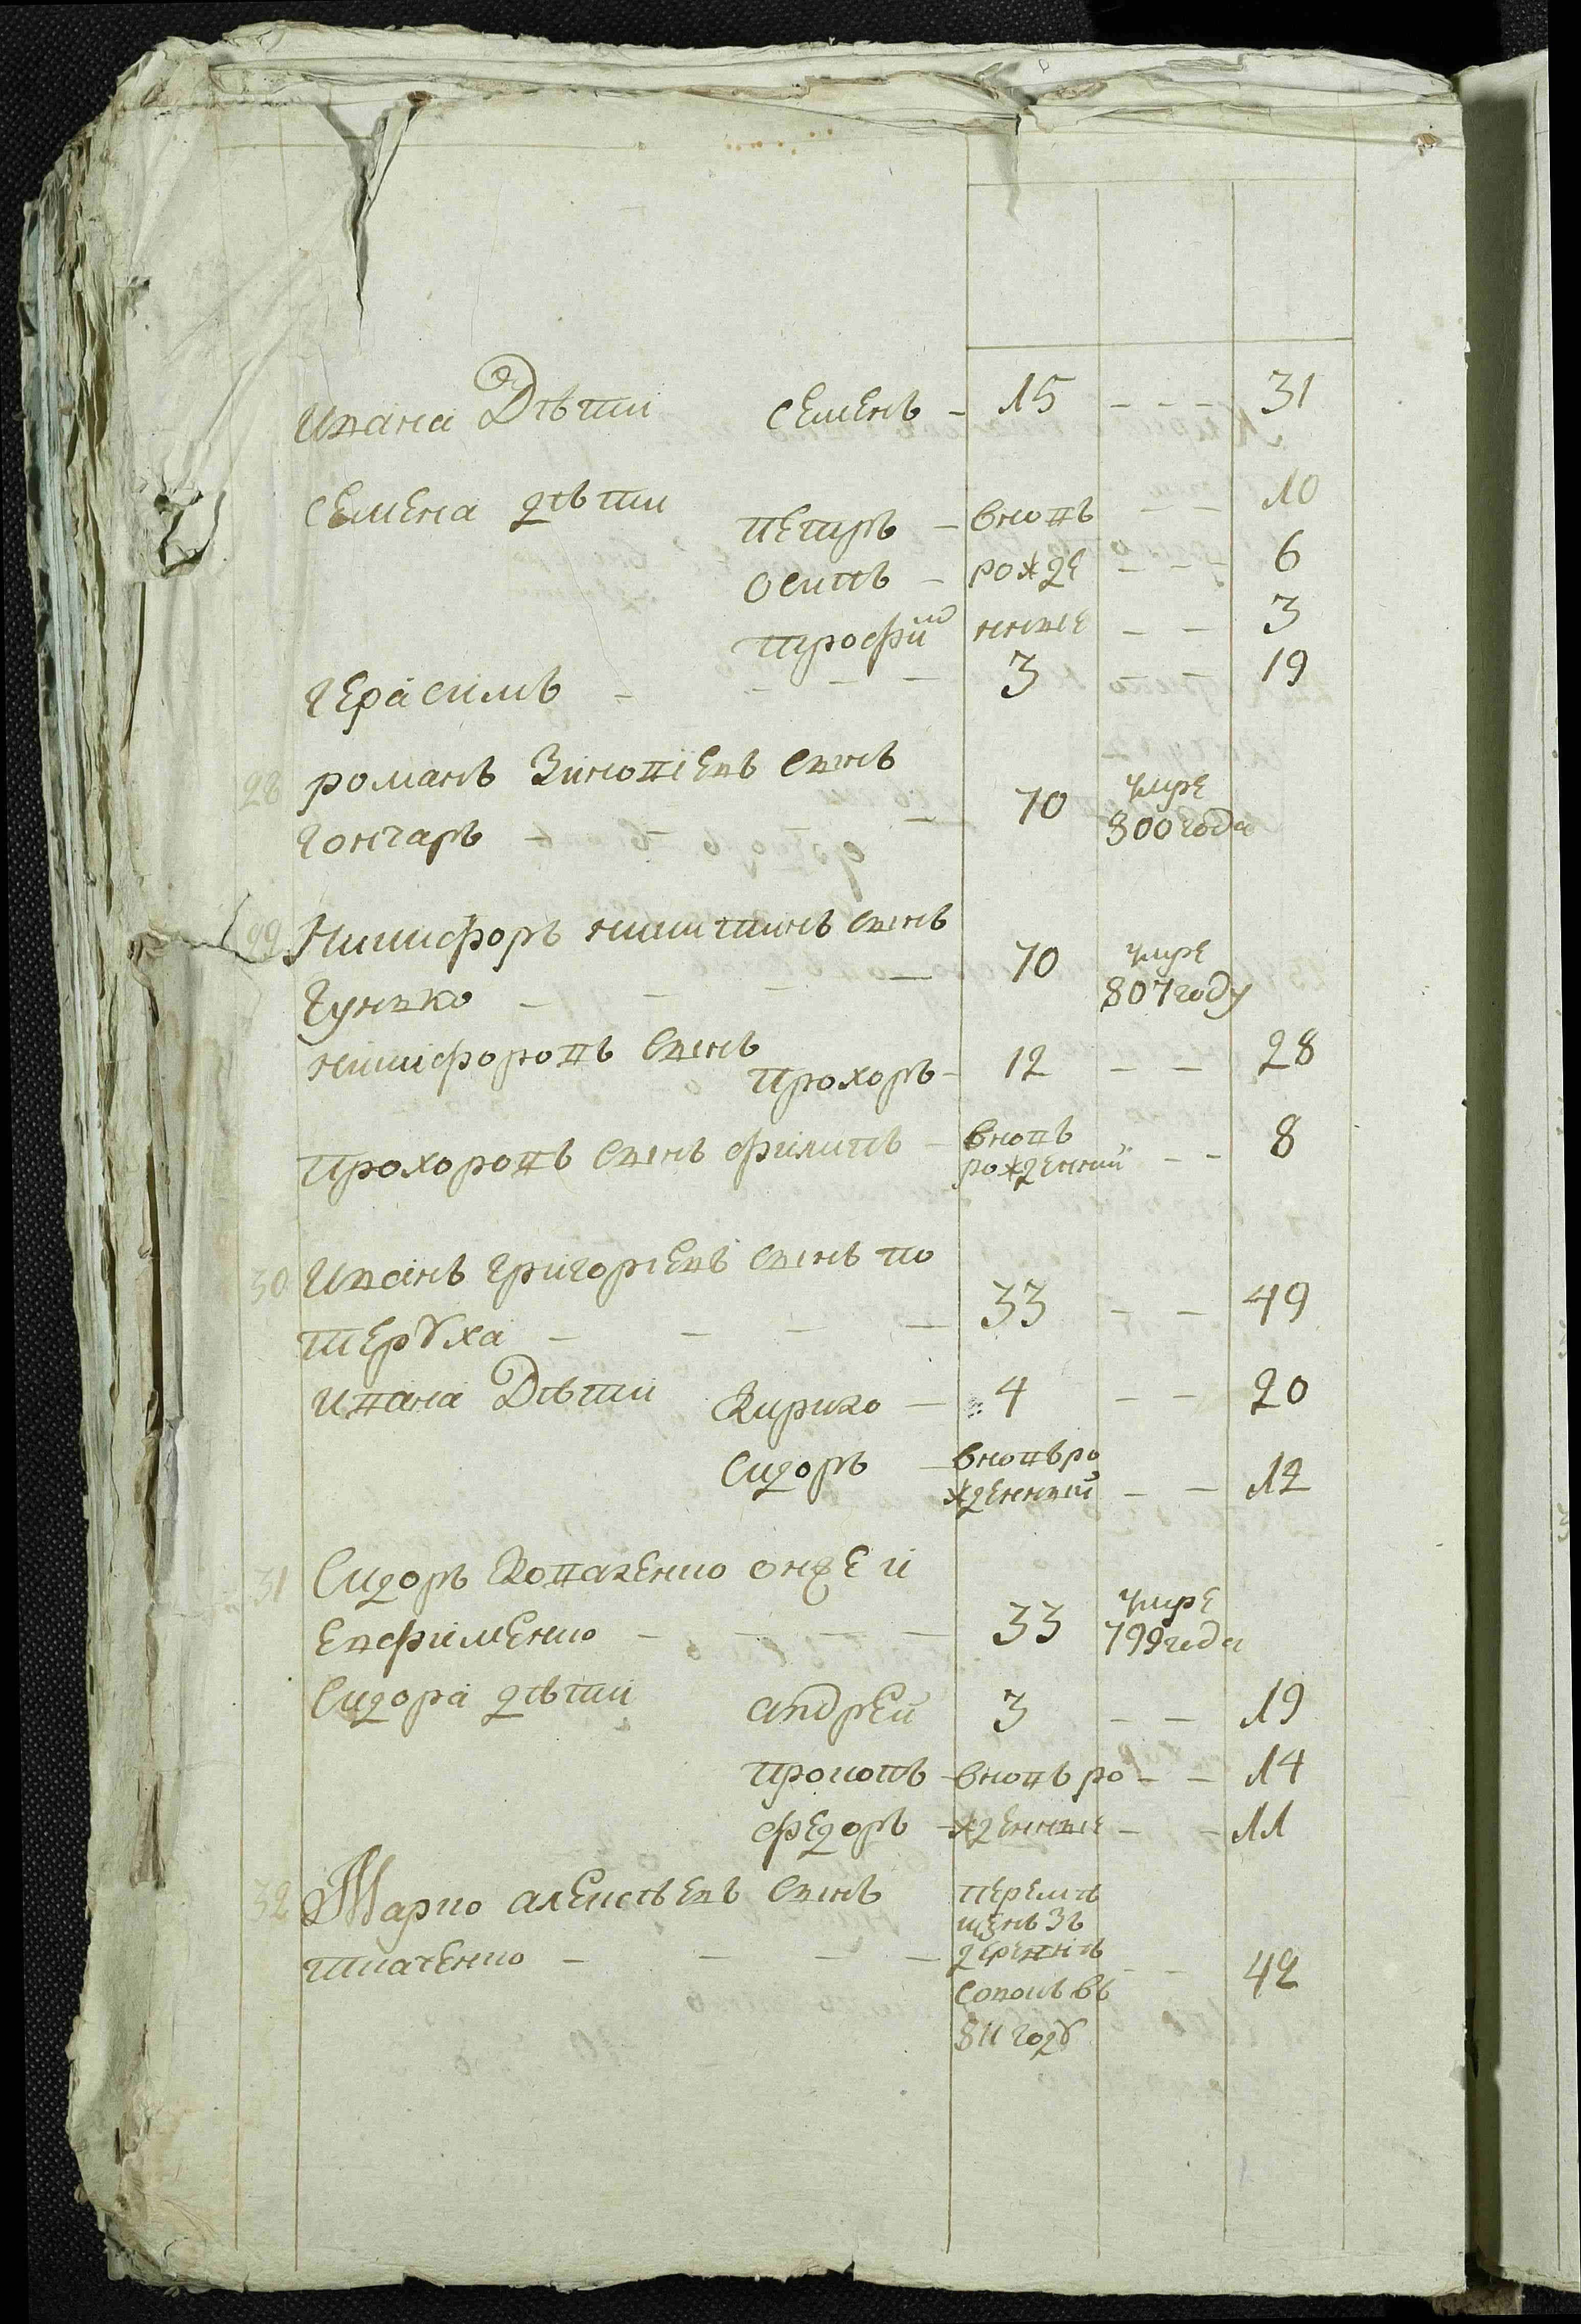 Ивана Дѣти Семенъ - 15 - - - 31
Семена дѣти
петръ - вновъ - - 10
осипъ - рожде - - - 6
трофим нные - - 3
Герасимъ - - - - 3 - - 19
28 романъ Зиновіевъ сынъ
Гончаръ - - - 70 умре 800 года
29 Никифоръ никитинъ сынъ
Гунько - - - - 70 умре 807 году
никифоровъ сынъ
прохоръ - 12 - - 28
прохоровъ сынъ филипъ - вновъ рожденний - - 8
30 Иванъ григоріевъ сынъ по
теруха - - - - 33 - - 49
ивана Дѣти Кирило - 4 - - 20
Сидоръ - вновъ ро
жденный - - 12
31 Сидоръ Коваленко онже и
Евфименко - - - - 33 умре 799 года
Сидора дѣти андрей 3 - - 19
прокопъ - вновъ ро - - 14
федоръ - жденные - - 11
32 Марко алексѣевъ сынъ
ткаченко - - - -
перемѣ
щенъ зъ
деревнѣ - - 42
въ
811 году